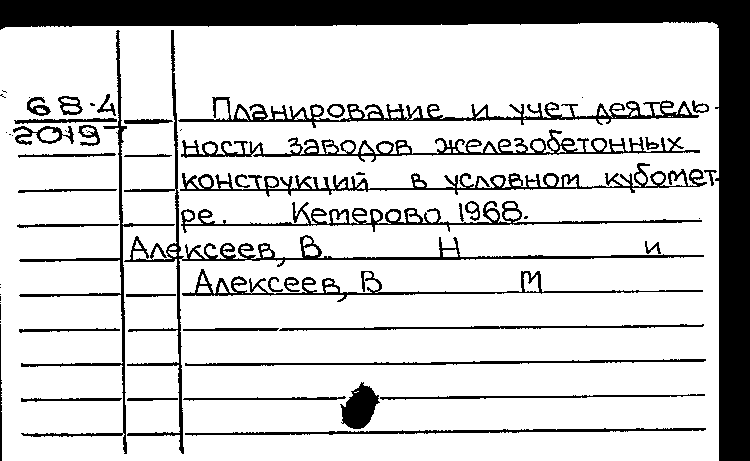 68-4 Планирование и учет деятель-
20197 ности заводов железобетонных
конструкций в условном кубомет-
ре. Кемерово, 1968.
Алексеев, В. Н и
Алексеев, В М